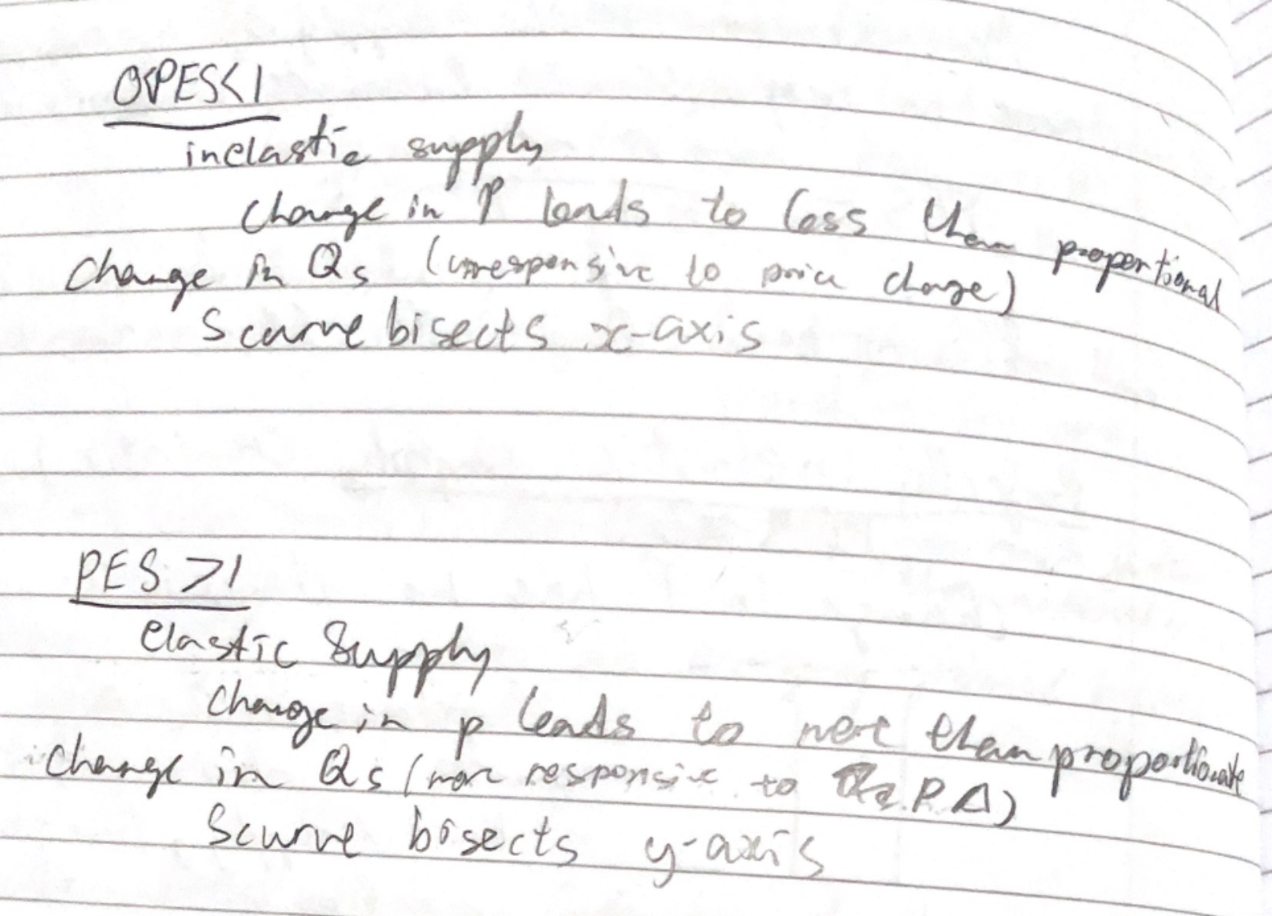 0<PES<1
inelastic supply
change in P leads to less than proportional
change in Qs (unresponsive to price change)
S curve bisects x-axis
PES >1
elastic supply
change in p leads to more than proportionate
change in Qs (more responsive to P Δ)
S curve bisects y-axis